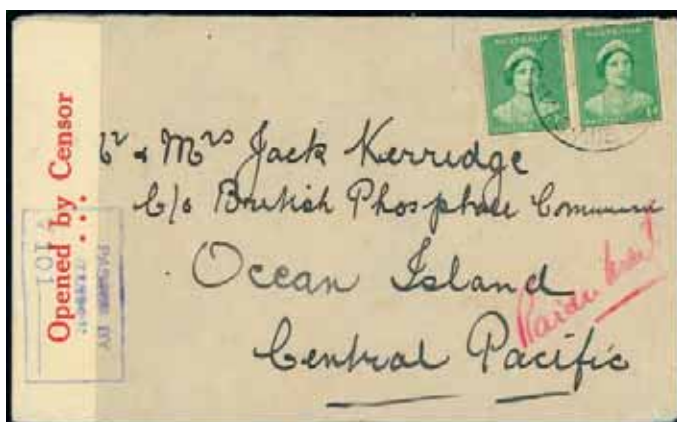 Opened by Censor
PASSED BY
V 101
AUSTRALIA
AUSTRALIA
Mr & Mrs Jack Kerridge
C/o British Phosphate
Ocean Island
Central Pacific